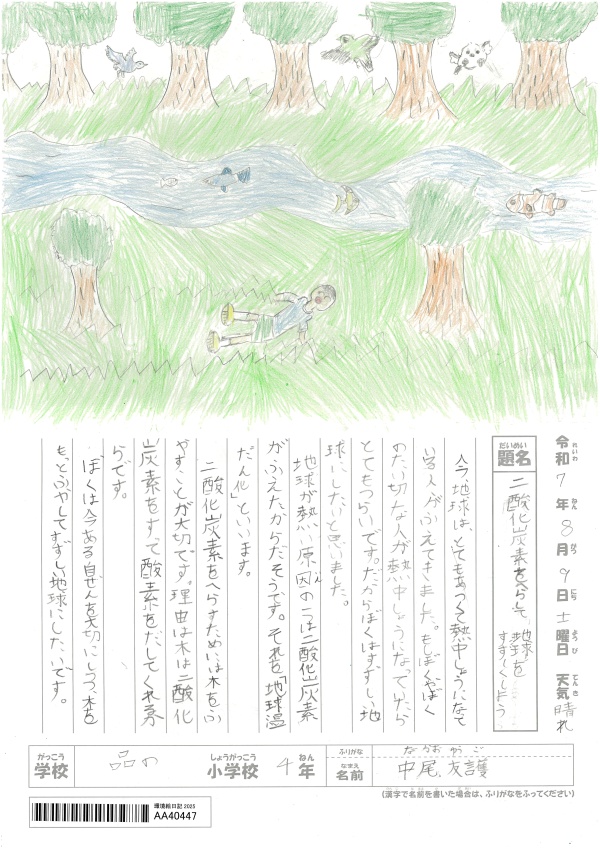 れいわ ねん がつ にち ようび てんき
令和7年8月9日土曜日 天気 晴れ
だいめい
題名 二酸化炭素をへらして、地球を
すずしくしよう
今地球は、とてもあつくて熱中しょうになて
いる人がふえてきました。もしぼくやぼく
のたい切な人が熱中しょうになっていたら
とてもつらいです。だからぼくはすずしい地
球にしたいと思いました。
地球が熱い原因の一つは二酸化炭素
がふえたからだそうです。それを「地球温
だん化」といいます。
二酸化炭素をへらすためには木をふ
やすことが大切です。理由は木は二酸化
炭素をすって酸素をだしてくれるか
らです。
ぼくは今ある自ぜんを大切にしろ、木を
もっとふやしてすずしい地球にしたいです。
がっこう しょうがっこう ねん ふりがな なかお ゆうご
学校 品の 小学校 4年 なまえ 名前 中尾 友護
(漢字で名前を書いた場合は、ふりがなをふってください)
環境絵日記 2025
AA40447